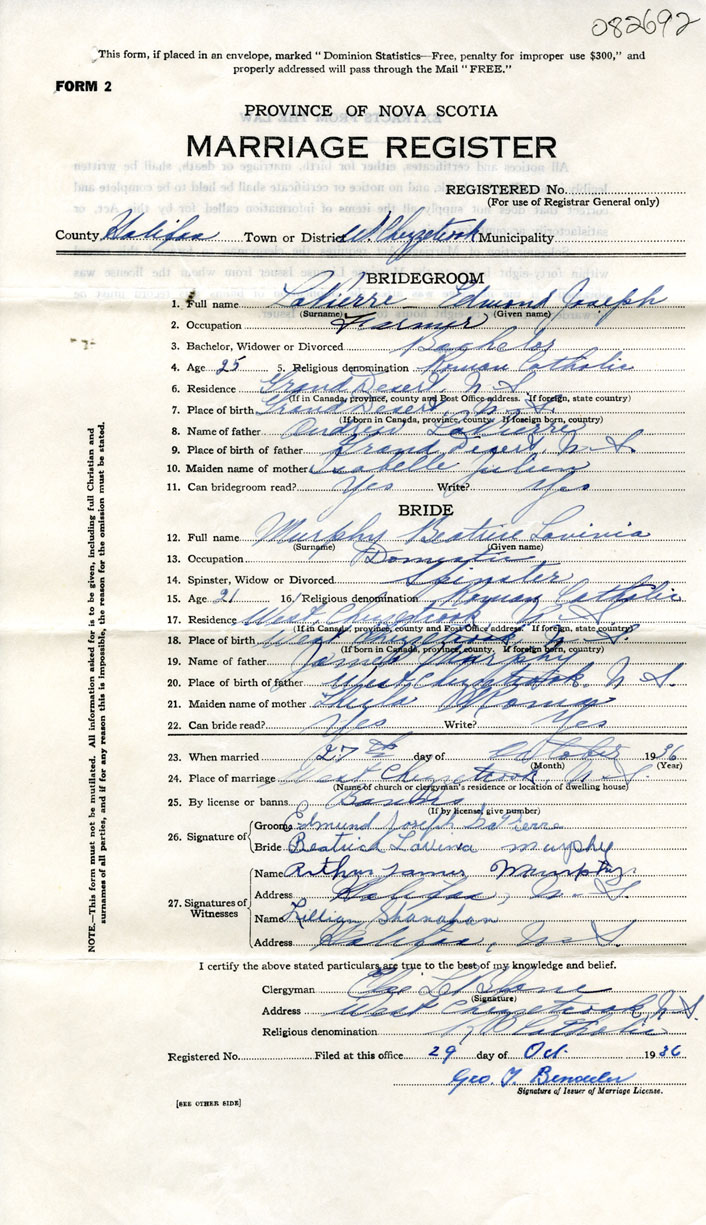 082692
This form, if placed in an envelope, marked "Dominion Statistics—Free, penalty for improper use $300," and
properly addressed will pass through the Mail "FREE."
FORM 2
PROVINCE OF NOVA SCOTIA
MARRIAGE REGISTER
REGISTERED No.
(For use of Registrar General only)
County Halifax Town or District W. Chezzetcook Municipality
BRIDEGROOM
1. Full name LaPierre Edmund Joseph
(Surname) (Given name)
2. Occupation Farmer
3. Bachelor, Widower or Divorced Bachelor
4. Age 25 5. Religious denomination Roman Catholic
6. Residence Grand Desert N.S.
(If in Canada, province, county and Post Office address. If foreign, state country)
7. Place of birth Grand Desert N.S.
(If born in Canada, province, county. If foreign born, country)
8. Name of father Andrew LaPierre
9. Place of birth of father Grand Desert N.S.
10. Maiden name of mother Isabelle Julien
11. Can bridegroom read? Yes Write? Yes
BRIDE
12. Full name Murphy Beatrice Lavinia
(Surname) (Given name)
13. Occupation Domestic
14. Spinster, Widow or Divorced Spinster
15. Age 21 16. Religious denomination Roman Catholic
17. Residence West Chezzetcook N.S.
(If in Canada, province, county and Post Office address. If foreign, state country)
18. Place of birth West Chezzetcook N.S.
(If born in Canada, province, county. If foreign born, country)
19. Name of father James Murphy
20. Place of birth of father West Chezzetcook N.S.
21. Maiden name of mother
22. Can bride read? Yes Write? Yes
23. When married 27th day of October 1936
(Month) (Year)
24. Place of marriage West Chezzetcook, N.S.
(Name of church or clergyman's residence or location of dwelling house)
25. By license or banns Banns
(If by license, give number)
26. Signature of Groom Edmund Joseph LaPierre
Bride Beatrice Lavinia Murphy
27. Signatures of Witnesses
Name Arthur James Murphy
Address Halifax, N.S.
Name Lillian Shanahan
Address Halifax, N.S.
I certify the above stated particulars are true to the best of my knowledge and belief.
Clergyman LeBlanc
(Signature)
Address West Chezzetcook N.S.
Religious denomination R. Catholic
Registered No. Filed at this office 29 day of Oct. 1936
Geo T.
Signature of Issuer of Marriage License.
[SEE OTHER SIDE]
NOTE.—This form must not be mutilated. All information asked for is to be given, including full Christian and
surnames of all parties, and if for any reason this is impossible, the reason for the omission must be stated.